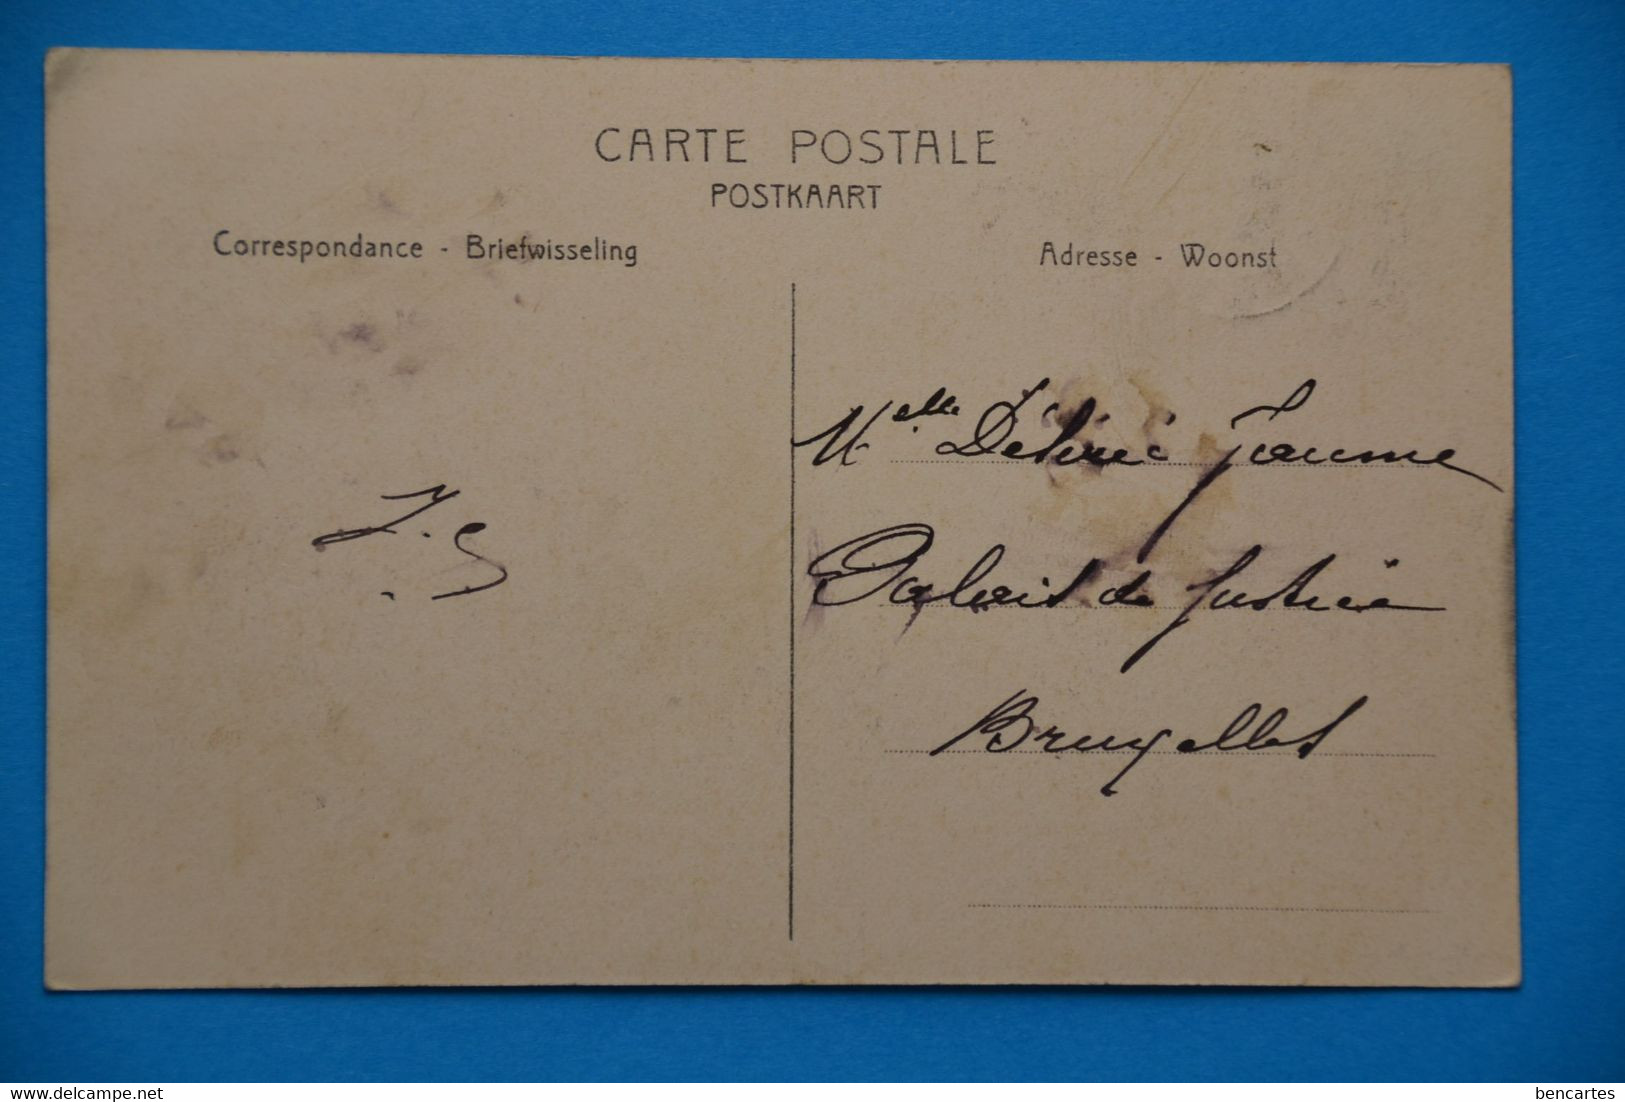 CARTE POSTALE
POSTKAART
Correspondance - Briefwisseling
Adresse - Woonst
Melle Désiré Jaume
Palais de Justice
Bruxelles
J. S.
www.delcampe.net
bencartes